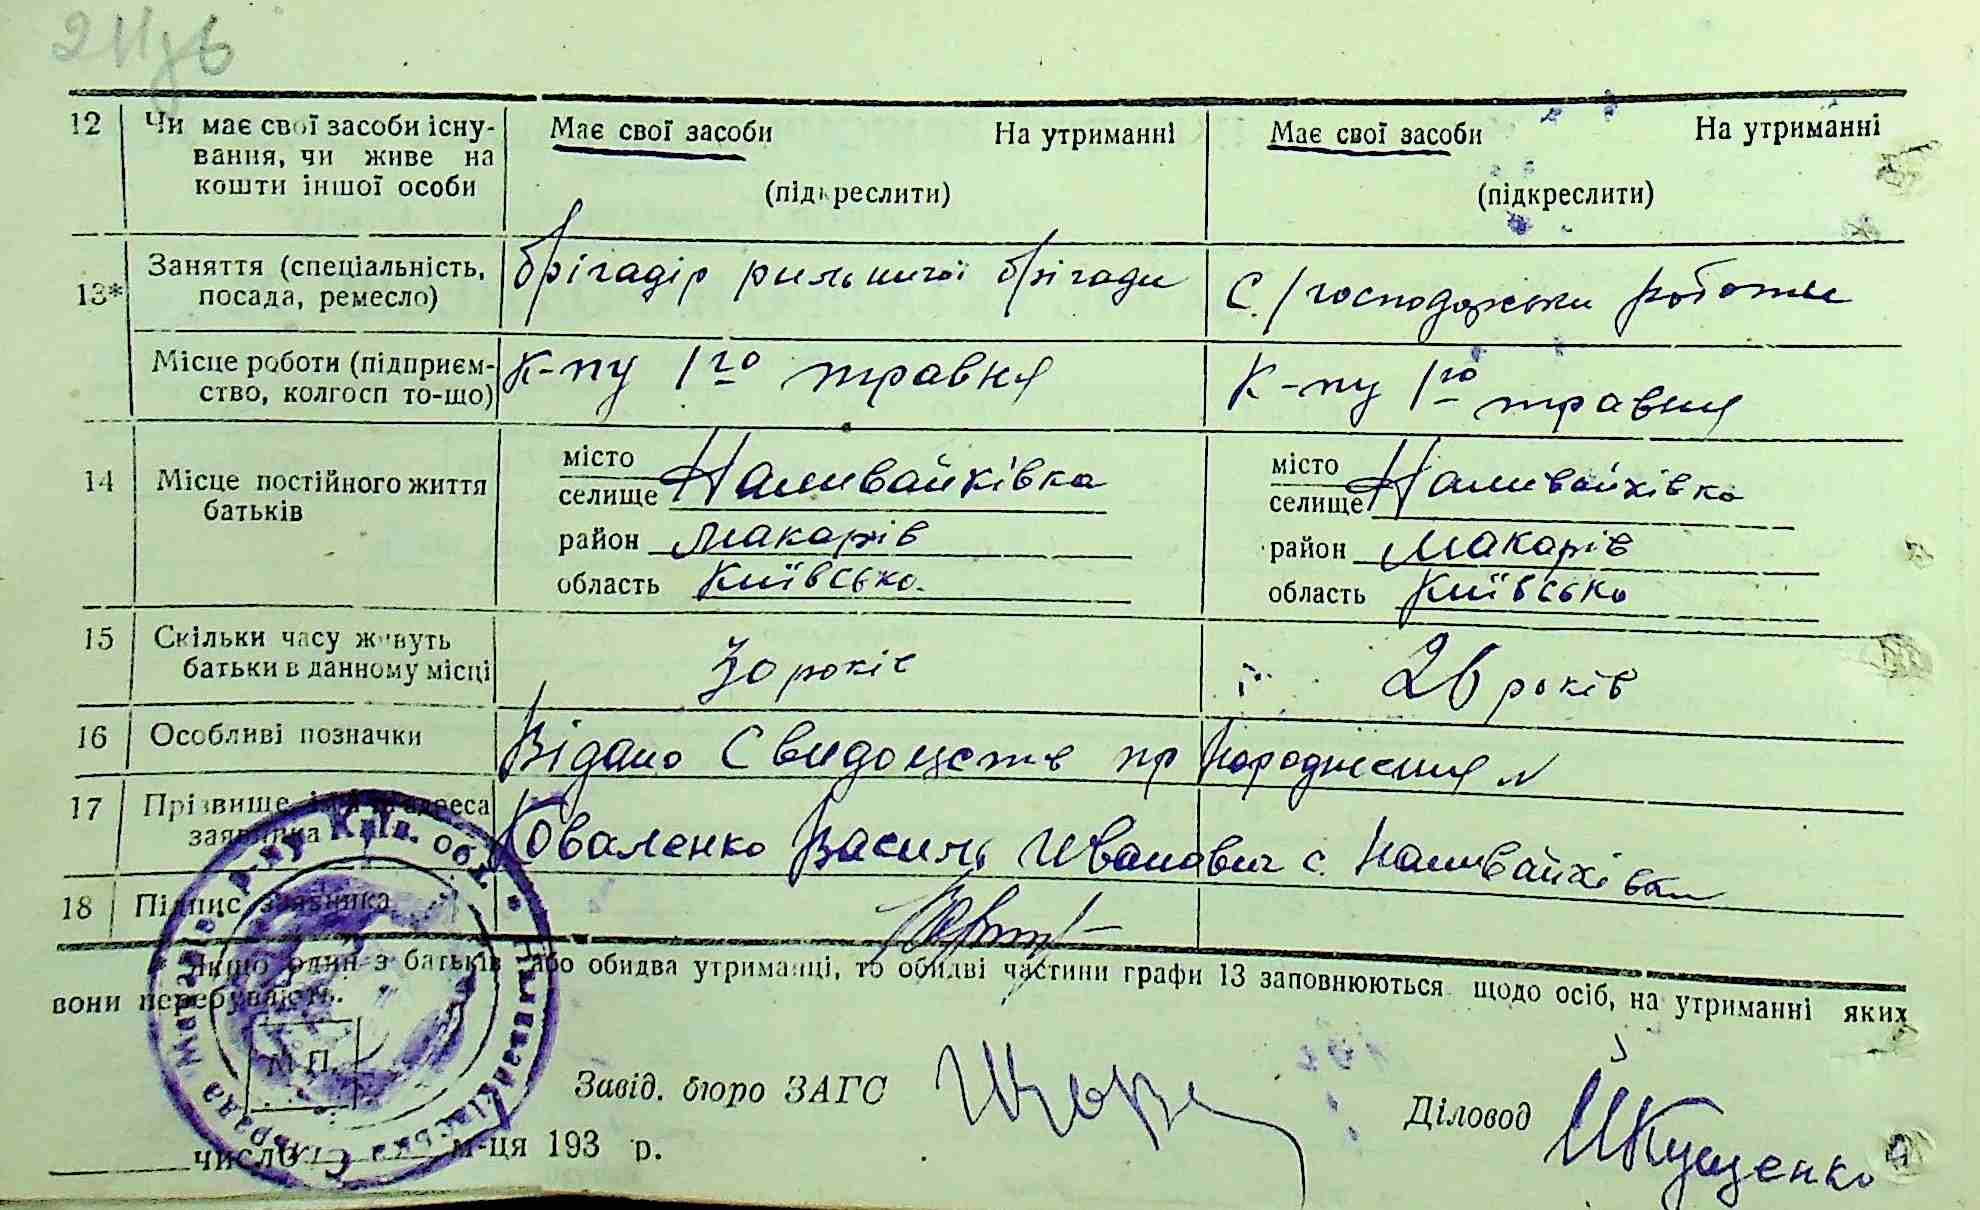 12 Чи має свої засоби існу- Має свої засоби На утриманні Має свої засоби На утриманні
вання, чи живе на
кошти іншої особи (підкреслити) (підкреслити)
13* Заняття (спеціальність, брігадір рильничої брігади С./господарськи роботы
посада, ремесло)
Місце роботи (підприєм- К-пу 1го травня К-пу 1го травня
ство, колгосп то-що)
14 Місце постійного життя місто місто
батьків селище Наливайківка селище Наливайківка
район Макарів район Макарів
область Київська область Київська
15 Скільки часу живуть 30 років 26 років
батьки в данному місці
16 Особливі позначки Відано Свидоцств пр Народження №
17 Прізвище, ім'я адреса Коваленко Василь Иванович с. Наливайківки
заявника
18 Підпис заявника
* Якщо один з батьків або обидва утриманці, то обидві частини графи 13 заповнюються щодо осіб, на утриманні яких
вони перебувають.
М.П.
Завід. бюро ЗАГС Діловод Кущенко
число м-ця 193 р.
Наливайківська Сільрада Макарів р-ну Київ. обл.